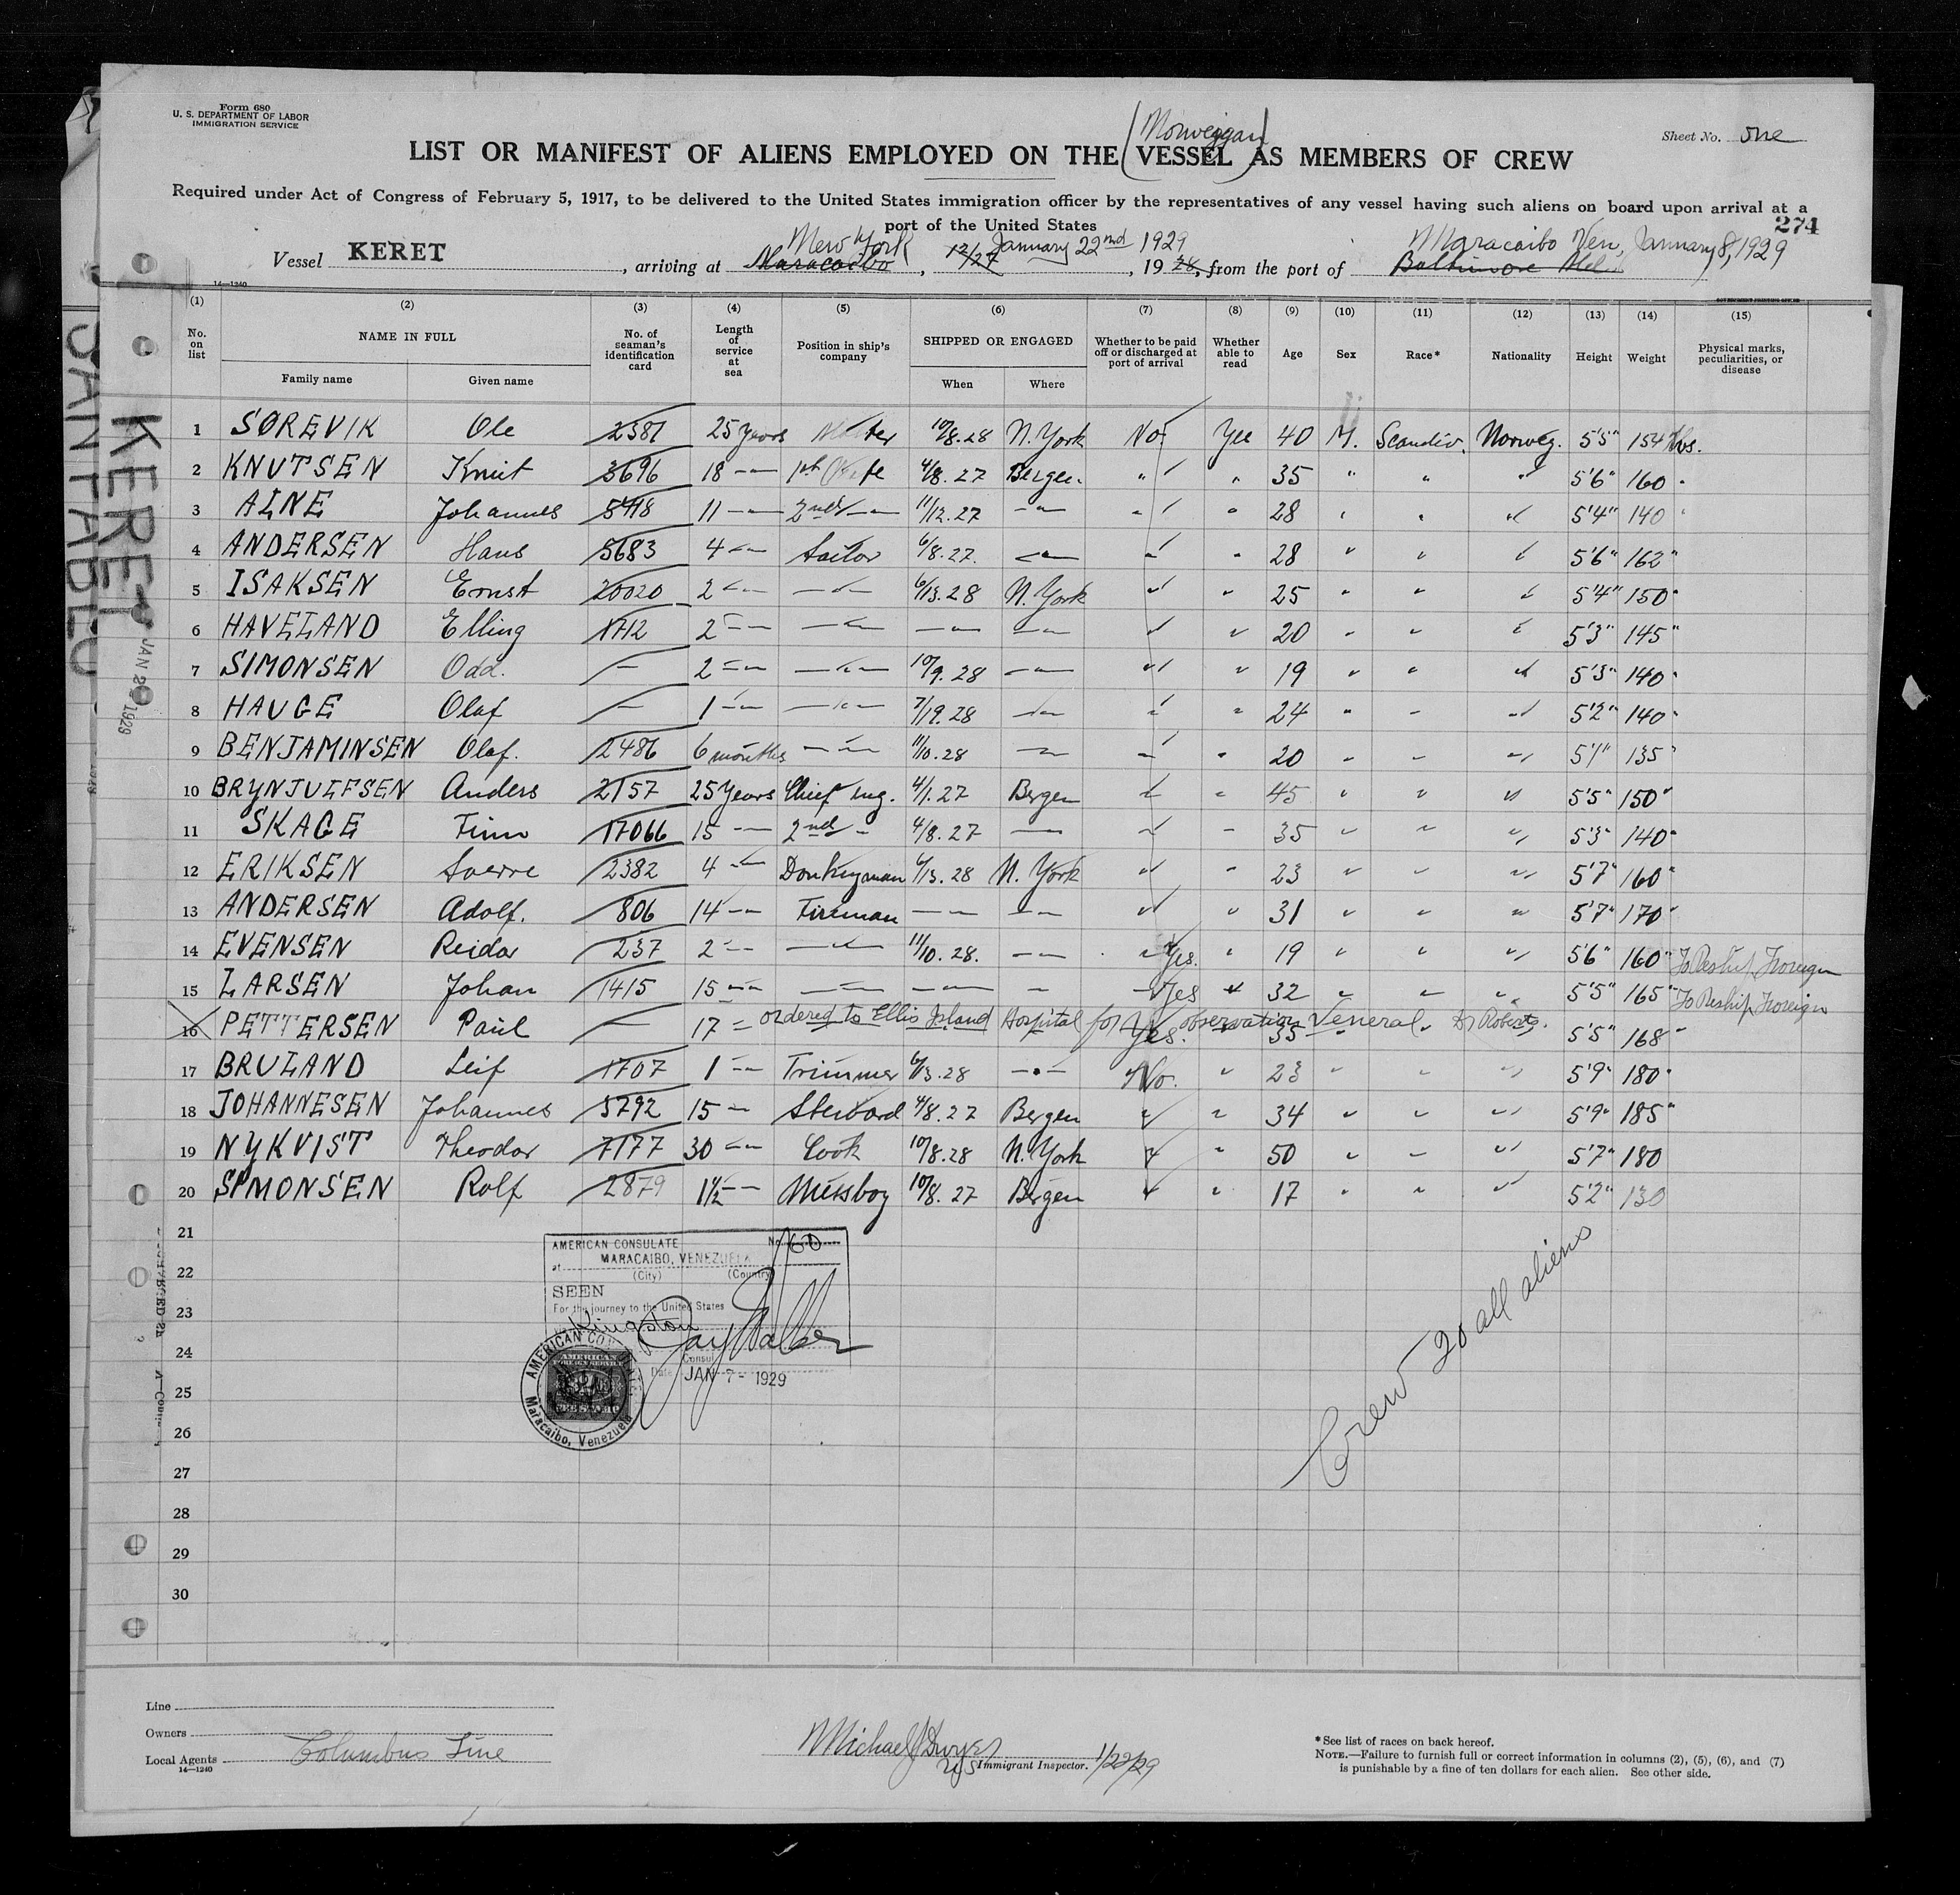 Form 680
U. S. DEPARTMENT OF LABOR
IMMIGRATION SERVICE
Sheet No. One
(Norwegian)
LIST OR MANIFEST OF ALIENS EMPLOYED ON THE VESSEL AS MEMBERS OF CREW
Required under Act of Congress of February 5, 1917, to be delivered to the United States immigration officer by the representatives of any vessel having such aliens on board upon arrival at a
port of the United States
274
New York January 22nd 1929 Maracaibo Ven, January 8, 1929
Vessel KERET, arriving at Maracaibo, 12/27, 1928, from the port of Baltimore
14—1240
(1) (2) (3) (4) (5) (6) (7) (8) (9) (10) (11) (12) (13) (14) (15)
No. on list NAME IN FULL Family name Given name No. of seaman's identification card Length of service at sea Position in ship's company SHIPPED OR ENGAGED When Where Whether to be paid off or discharged at port of arrival Whether able to read Age Sex Race* Nationality Height Weight Physical marks, peculiarities, or disease
1 SØREVIK Ole 2381 25 Years Master 10/8.28 N. York No Yes 40 M. Scandiv. Norweg. 5'5" 154 lbs.
2 KNUTSEN Knut 3696 18 -"- 1st 4/8.27 Bergen " " 35 " " " 5'6" 160 "
3 ALNE Johannes 5418 11 -"- 2nd -"- 11/12.27 -"- " " 28 " " " 5'4" 140 "
4 ANDERSEN Hans 5683 4 -"- Sailor 6/8.27. -"- " " 28 " " " 5'6" 162 "
5 ISAKSEN Ernst 20020 2 -"- -"- 6/13.28 N. York " " 25 " " " 5'4" 150 "
6 HAVELAND Elling 1712 2 -"- -"- -"- -"- " " 20 " " " 5'3" 145 "
7 SIMONSEN Odd. — 2 -"- -"- 10/9.28 -"- " " 19 " " " 5'3" 140 "
8 HAUGE Olaf — 1 -"- -"- 7/19.28 -"- " " 24 " " " 5'2" 140 "
9 BENJAMINSEN Olaf. 2486 6 months -"- 11/10.28 -"- " " 20 " " " 5'1" 135 "
10 BRYNJULFSEN Anders 2157 25 Years Chief Eng. 4/1.27 Bergen " " 45 " " " 5'5" 150 "
11 SKAGE Finn 17066 15 -"- 2nd -"- 4/8.27 -"- " " 35 " " " 5'3" 140 "
12 ERIKSEN Sverre 2382 4 -"- Donkeyman 6/13.28 N. York " " 23 " " " 5'7" 160 "
13 ANDERSEN Adolf. 806 14 -"- Fireman -"- -"- " " 31 " " " 5'7" 170 "
14 EVENSEN Reidar 237 2 -"- -"- 11/10.28. -"- Yes. " 19 " " " 5'6" 160 " To Reship Foreign
15 LARSEN Johan 1415 15 -"- -"- -"- " Yes " 32 " " " 5'5" 165 " To Reship Foreign
16 PETTERSEN Paul — 17 -"- ordered to Ellis Island Hospital for observation Veneral. Dr Roberts. Yes. 35 5'5" 168 "
17 BRULAND Leif 1707 1 -"- Trimmer 6/13.28 -"- No. " 23 " " " 5'9" 180 "
18 JOHANNESEN Johannes 3792 15 -"- Steward 4/8.27 Bergen " " 34 " " " 5'9" 185 "
19 NYKVIST Theodor 7177 30 -"- Cook 10/8.28 N. York " " 50 " " " 5'7" 180
20 SIMONSEN Rolf 2879 1½ -"- Messboy 10/8.27 Bergen " " 17 " " " 5'2" 130
21
22
23
24
25
26
27
28
29
30
AMERICAN CONSULATE No. 160
at MARACAIBO, VENEZUELA
(City) (Country)
SEEN
For the journey to the United States
Kingston
Consul
Date JAN 7 - 1929
AMERICAN
FOREIGN SERVICE
FEE STAMP
Maracaibo, Venezuela
Crew 20 all aliens
KERET
JAN 2 1929
Line
Owners
Local Agents Columbus Line
14—1240
Michael J Dwyer
US Immigrant Inspector. 1/22/29
*See list of races on back hereof.
NOTE.—Failure to furnish full or correct information in columns (2), (5), (6), and (7)
is punishable by a fine of ten dollars for each alien. See other side.